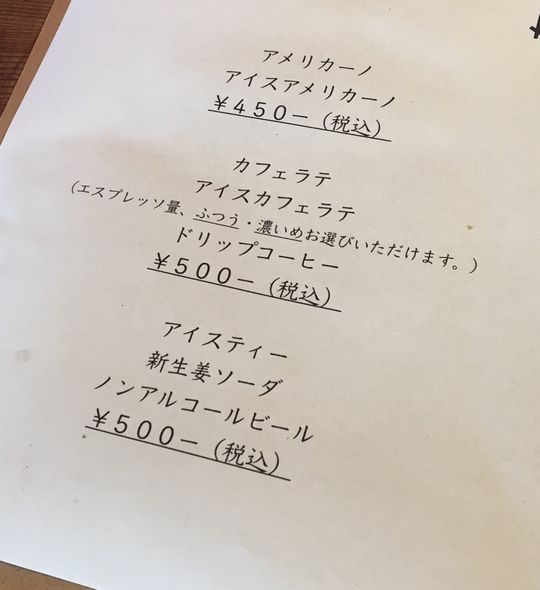 アメリカーノ
アイスアメリカーノ
￥450－（税込）
カフェラテ
アイスカフェラテ
（エスプレッソ量、ふつう・濃いめお選びいただけます。）
ドリップコーヒー
￥500－（税込）
アイスティー
新生姜ソーダ
ノンアルコールビール
￥500－（税込）